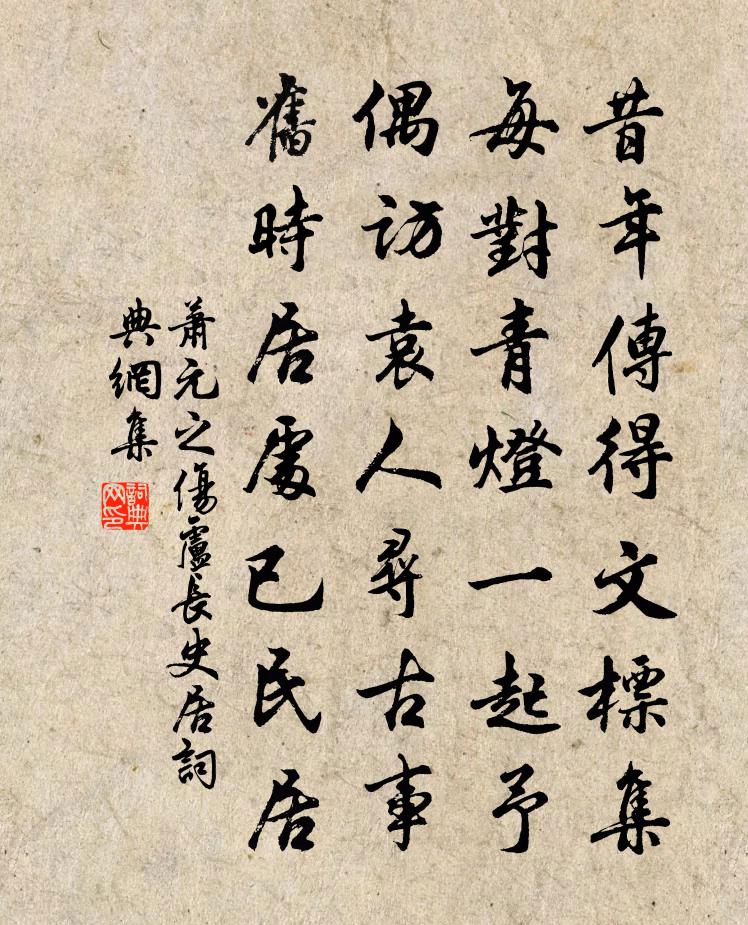 昔年傳得文標集
每對青燈一起予
偶訪袁人尋古事
舊時居處已民居
蕭元之傷盧長史居詞
典網集
詞典
网印